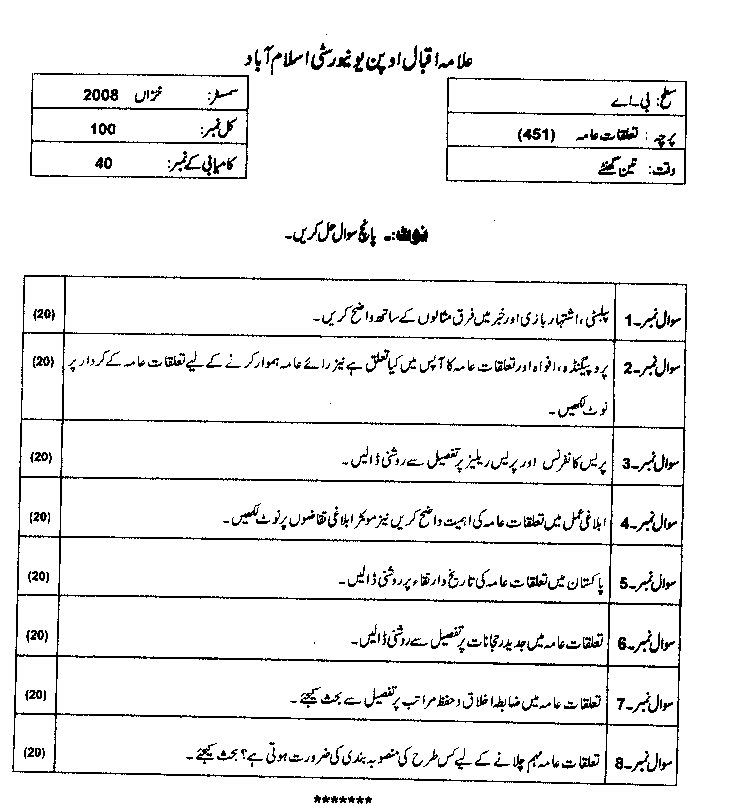 علامہ اقبال اوپن یونیورسٹی اسلام آباد
سطح: بی اے
سمسٹر: خزاں 2008
پرچہ: تعلقات عامہ (451)
کل نمبر: 100
وقت: تین گھنٹے
کامیابی کے نمبر: 40
نوٹ:۔ پانچ سوال حل کریں۔
سوال نمبر۔1 پبلسٹی، اشتہار بازی اور خبر میں فرق مثالوں کے ساتھ واضح کریں۔ (20)
سوال نمبر۔2 پروپیگنڈہ، افواہ اور تعلقات عامہ کا آپس میں کیا تعلق ہے نیز رائے عامہ ہموار کرنے کے لیے تعلقات عامہ کے کردار پر (20)
نوٹ لکھیں۔
سوال نمبر۔3 پریس کانفرنس اور پریس ریلیز پر تفصیل سے روشنی ڈالیں۔ (20)
سوال نمبر۔4 ابلاغی عمل میں تعلقات عامہ کی اہمیت واضح کریں نیز موثر ابلاغی تقاضوں پر نوٹ لکھیں۔ (20)
سوال نمبر۔5 پاکستان میں تعلقات عامہ کی تاریخ و ارتقاء پر روشنی ڈالیں۔ (20)
سوال نمبر۔6 تعلقات عامہ میں جدید رجحانات پر تفصیل سے روشنی ڈالیں۔ (20)
سوال نمبر۔7 تعلقات عامہ میں ضابطہ اخلاق و حفظ مراتب پر تفصیل سے بحث کیجئے۔ (20)
سوال نمبر۔8 تعلقات عامہ مہم چلانے کے لیے کس طرح کی منصوبہ بندی کی ضرورت ہوتی ہے؟ بحث کیجئے۔ (20)
*******